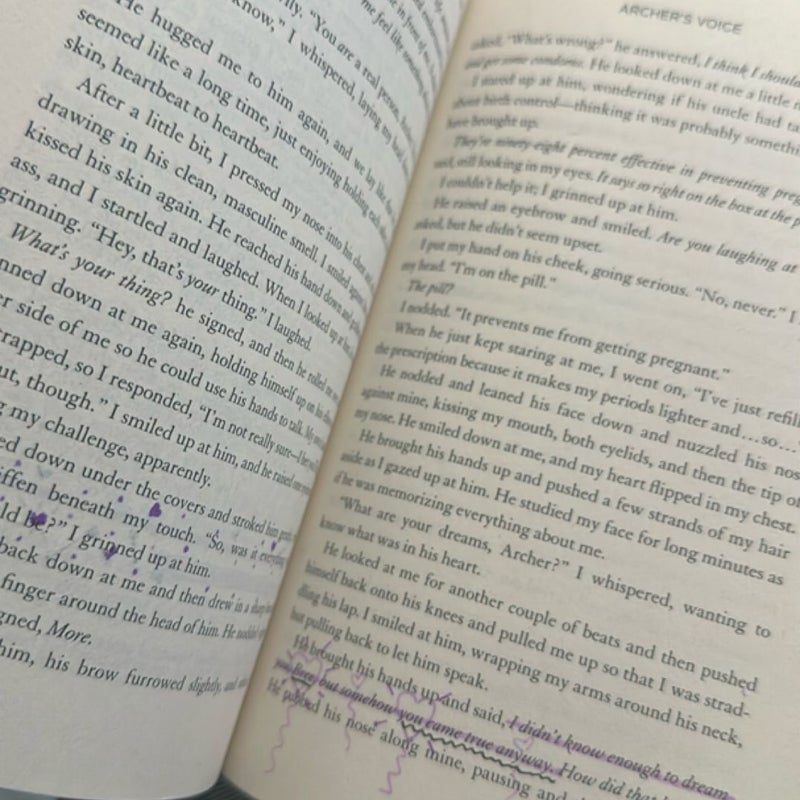 know," I whispered, laying my head
He hugged me to him again, and we lay like
seemed like a long time, just enjoying holding each
skin, heartbeat to heartbeat.
After a little bit, I pressed my nose into his chest
drawing in his clean, masculine smell. I smiled against
kissed his skin again. He reached his hand down and
ass, and I startled and laughed. When I looked up at
grinning. "Hey, that's your thing." I laughed.
What's your thing? he signed, and then he rolled me
down at me again, holding himself up on his
side of me so he could use his hands to talk. My
so I responded, "I'm not really sure—I
though." I smiled up at him, and he raised one
my challenge, apparently.
down under the covers and stroked him
beneath my touch. "So, was it everything
be?" I grinned up at him.
back down at me and then drew in a sharp
finger around the head of him. He nodded
More.
him, his brow furrowed slightly, and
ARCHER'S VOICE
asked, "What's wrong?" he answered, I think I should
and get some condoms. He looked down at me a little
I stared up at him, wondering if his uncle had
about birth control—thinking it was probably
have brought up.
They're ninety-eight percent effective in preventing
said, still looking in my eyes. It says so right on the box at the
I couldn't help it; I grinned up at him.
He raised an eyebrow and smiled. Are you laughing at
asked, but he didn't seem upset.
I put my hand on his cheek, going serious. "No, never." I
my head. "I'm on the pill."
The pill?
I nodded. "It prevents me from getting pregnant."
When he just kept staring at me, I went on, "I've just
the prescription because it makes my periods lighter and…so…"
He nodded and leaned his face down and nuzzled his
against mine, kissing my mouth, both eyelids, and then the tip of
my nose. He smiled down at me, and my heart flipped in my chest.
He brought his hands up and pushed a few strands of my hair
aside as I gazed up at him. He studied my face for long minutes as
if he was memorizing everything about me.
"What are your dreams, Archer?" I whispered, wanting to
know what was in his heart.
He looked at me for another couple of beats and then pushed
himself back onto his knees and pulled me up so that I was strad-
dling his lap. I smiled at him, wrapping my arms around his neck,
but pulling back to let him speak.
He brought his hands up and said, I didn't know enough to dream
you, Bree, but somehow you came true anyway. How did that
He pushed his nose along mine, pausing and